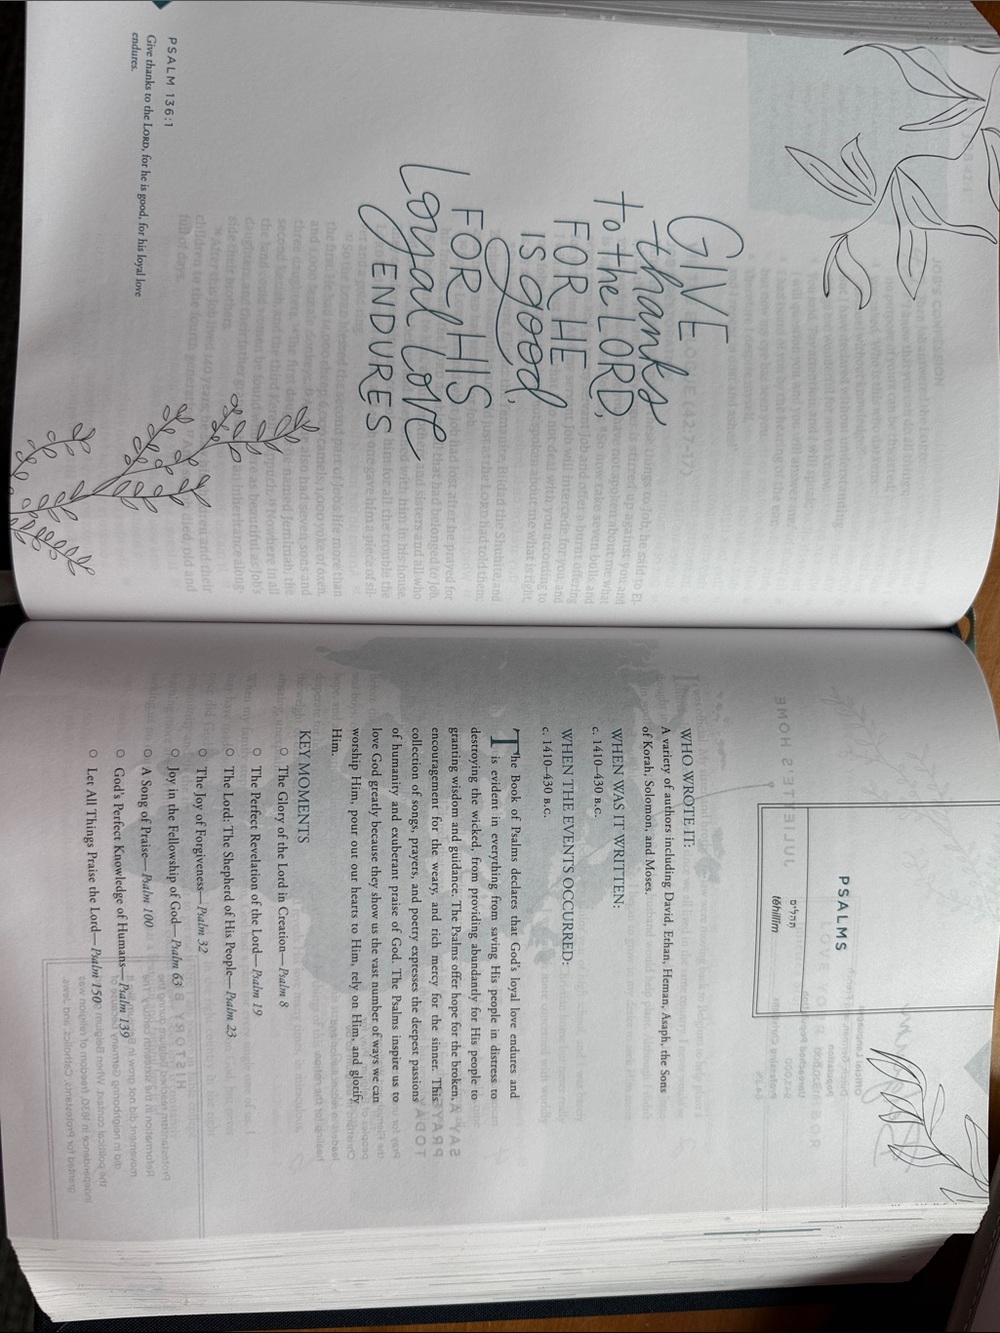 GIVE
thanks
to the LORD,
FOR HE
IS good,
FOR HIS
loyal love
ENDURES
PSALM 136:1
Give thanks to the LORD, for he is good, for his loyal love
endures.
PSALMS
תהלים
tĕhillîm
WHO WROTE IT:
A variety of authors including David, Ethan, Heman, Asaph, the Sons
of Korah, Solomon, and Moses.
WHEN WAS IT WRITTEN:
c. 1410–430 B.C.
WHEN THE EVENTS OCCURRED:
c. 1410–430 B.C.
The Book of Psalms declares that God's loyal love endures and
is evident in everything from saving His people in distress to
destroying the wicked, from providing abundantly for His people to
granting wisdom and guidance. The Psalms offer hope for the broken,
encouragement for the weary, and rich mercy for the sinner. This
collection of songs, prayers, and poetry expresses the deepest passions
of humanity and exuberant praise of God. The Psalms inspire us to
love God greatly because they show us the vast number of ways we can
worship Him, pour out our hearts to Him, rely on Him, and glorify
Him.
KEY MOMENTS
○ The Glory of the Lord in Creation—Psalm 8
○ The Perfect Revelation of the Lord—Psalm 19
○ The Lord: The Shepherd of His People—Psalm 23
○ The Joy of Forgiveness—Psalm 32
○ Joy in the Fellowship of God—Psalm 63
○ A Song of Praise—Psalm 100
○ God's Perfect Knowledge of Humans—Psalm 139
○ Let All Things Praise the Lord—Psalm 150